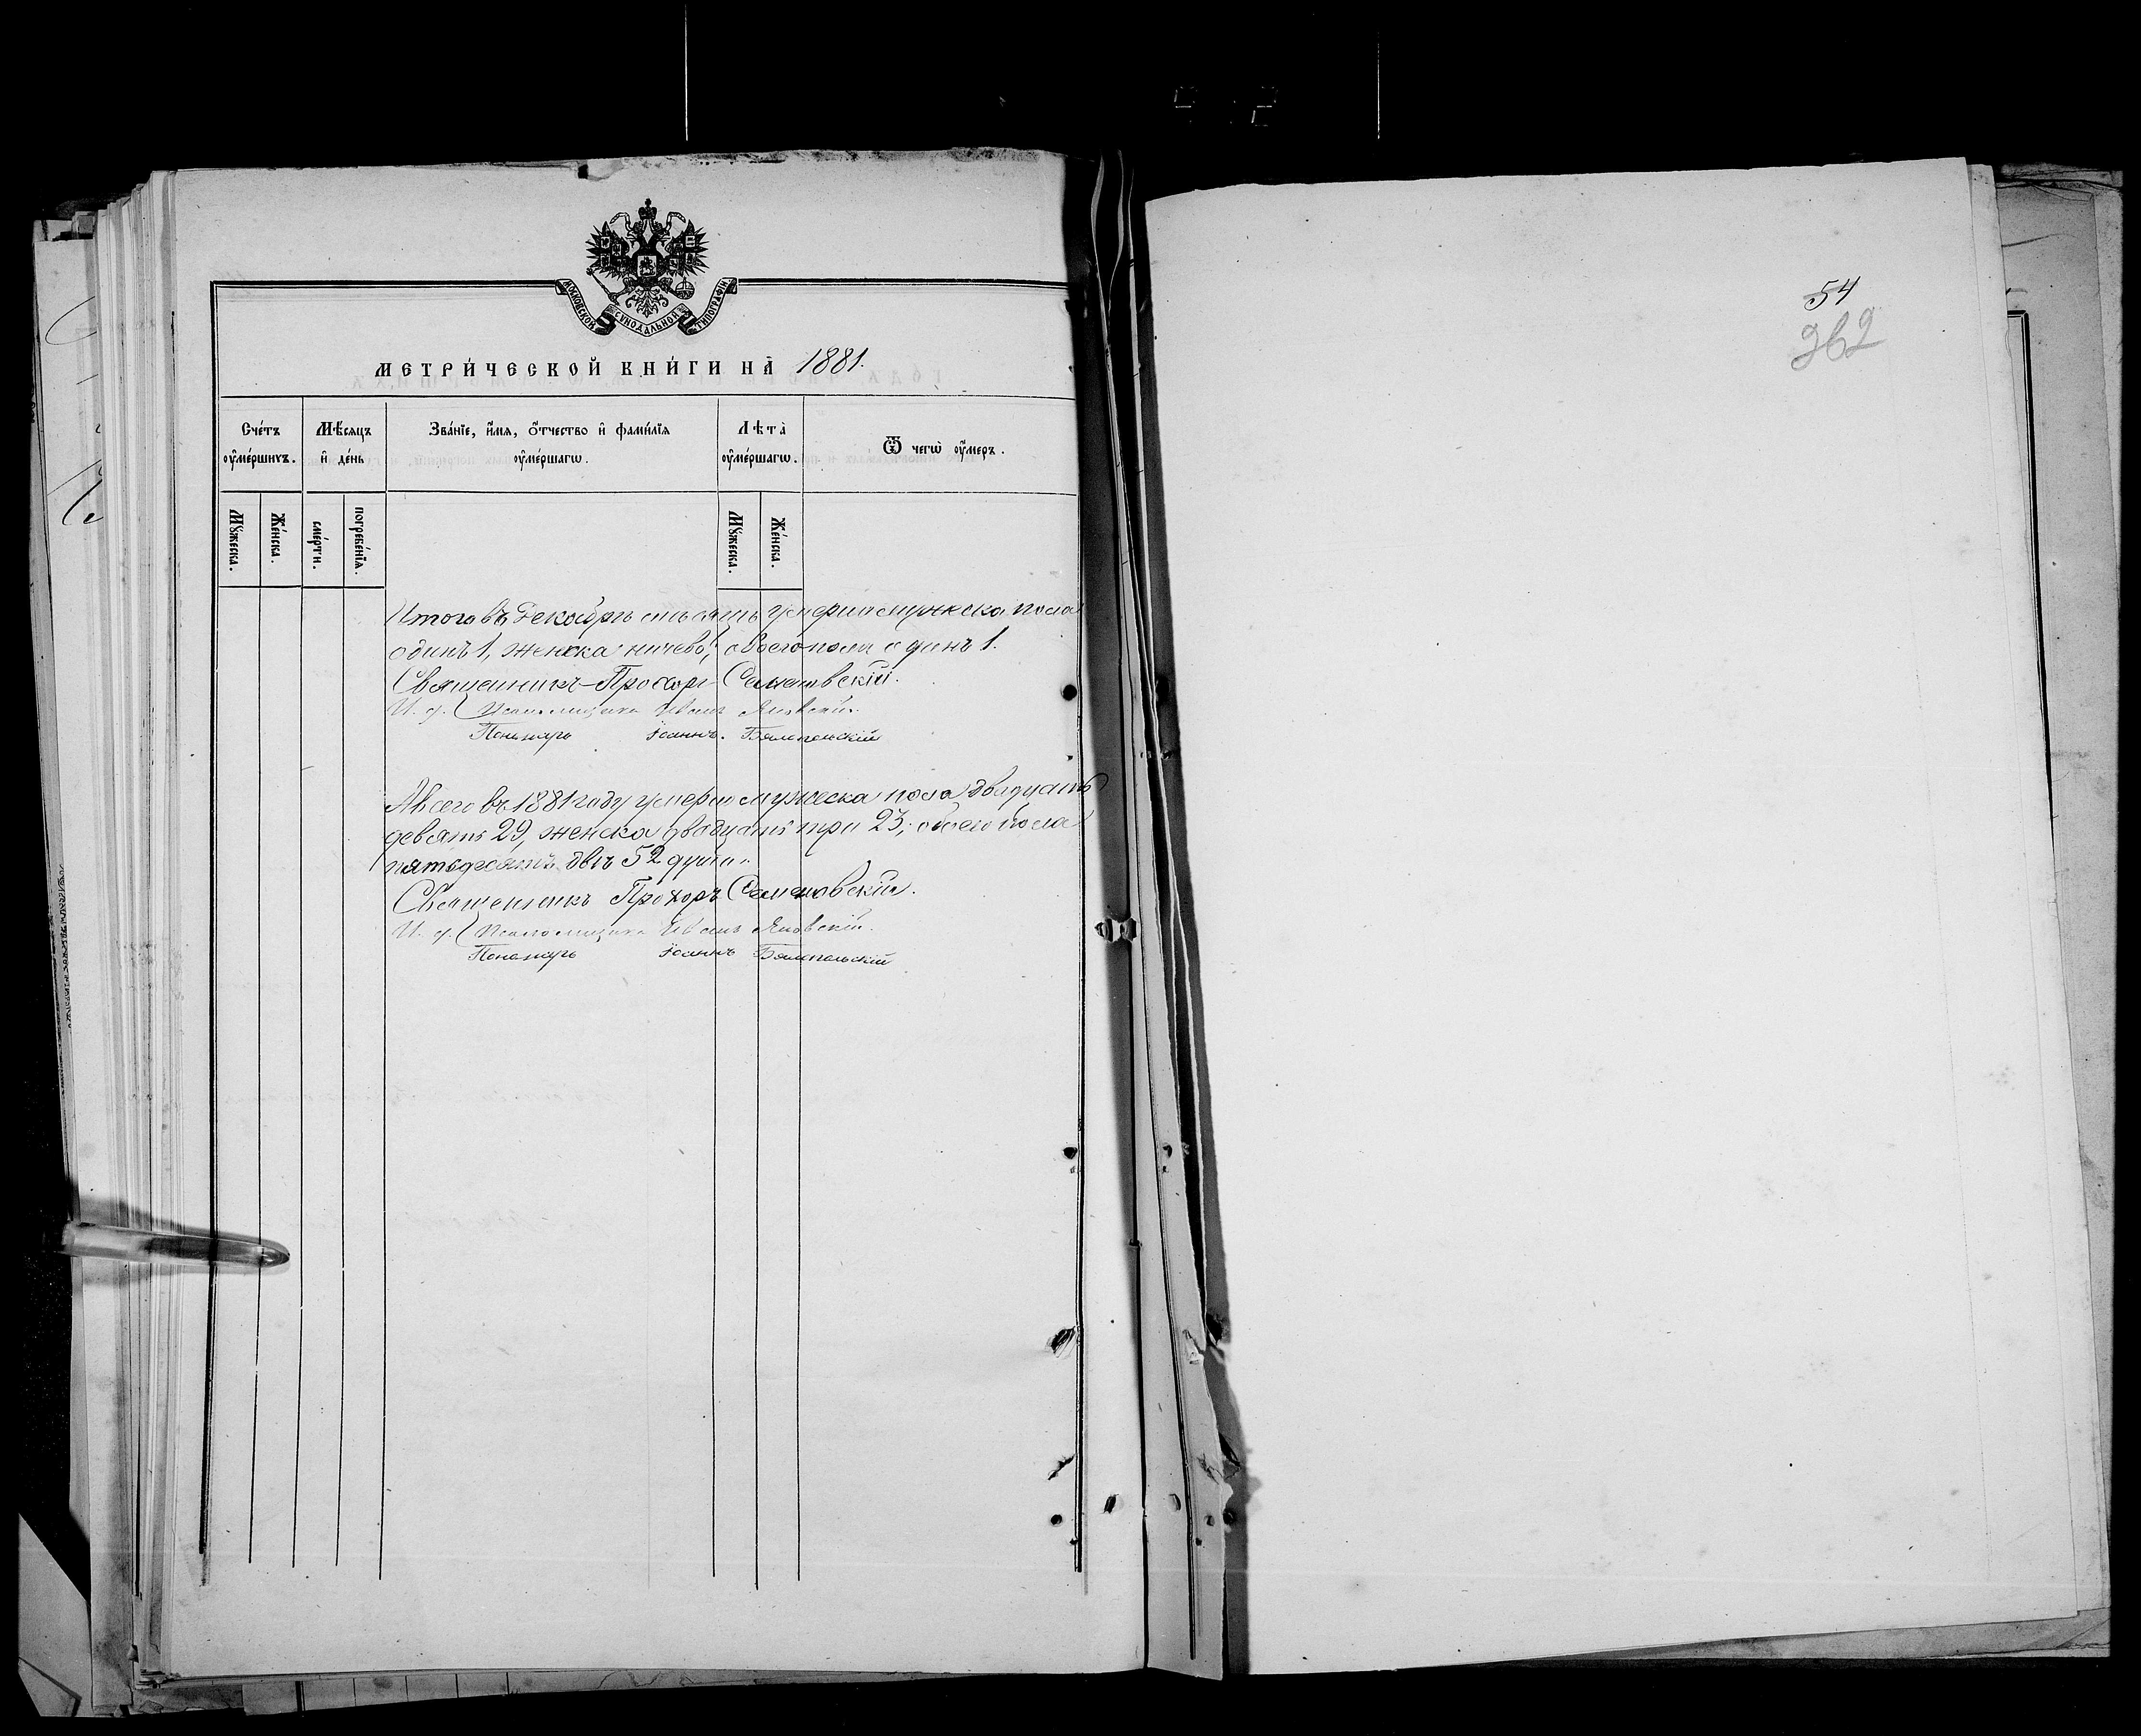 МОСКОВСКОЙ СѴНОДАЛЬНОЙ ТИПОГРАФІИ
МЕТРИ́ЧЕСКОЙ КНИ́ГИ НА̀ 1881.
Сче́тъ ᲂу҆ме́ршихъ.
Мѣ́сяцъ и҆ де́нь
Зва́нїе, и҆́мѧ, ѻ҆́тчество и҆ фами́лїѧ ᲂу҆ме́ршагѡ.
Лѣ́та ᲂу҆ме́ршагѡ.
Ѿ чегѡ̀ ᲂу҆́меръ.
Мꙋ́жеска.
Же́нска.
сме́рти.
погребе́нїѧ.
Мꙋ́жеска.
Же́нска.
Итого въ Декабрѣ мѣсяцѣ умерло мужска пола
одинъ 1, женска ничево, обоего пола одинъ 1.
Священникъ Прохоръ Семеновскій.
И. д. Псаломщика Иванъ Яновскій.
Пономарь Іоаннъ Бялопольскій
А всего въ 1881 году умерло мужеска пола двадцать
девять 29, женска двадцать три 23, обоего пола
пятьдесятъ двѣ 52 души.
Священникъ Прохоръ Семеновскій.
И. д. Псаломщика Иванъ Яновскій.
Пономарь Іоаннъ Бялопольскій
54
362